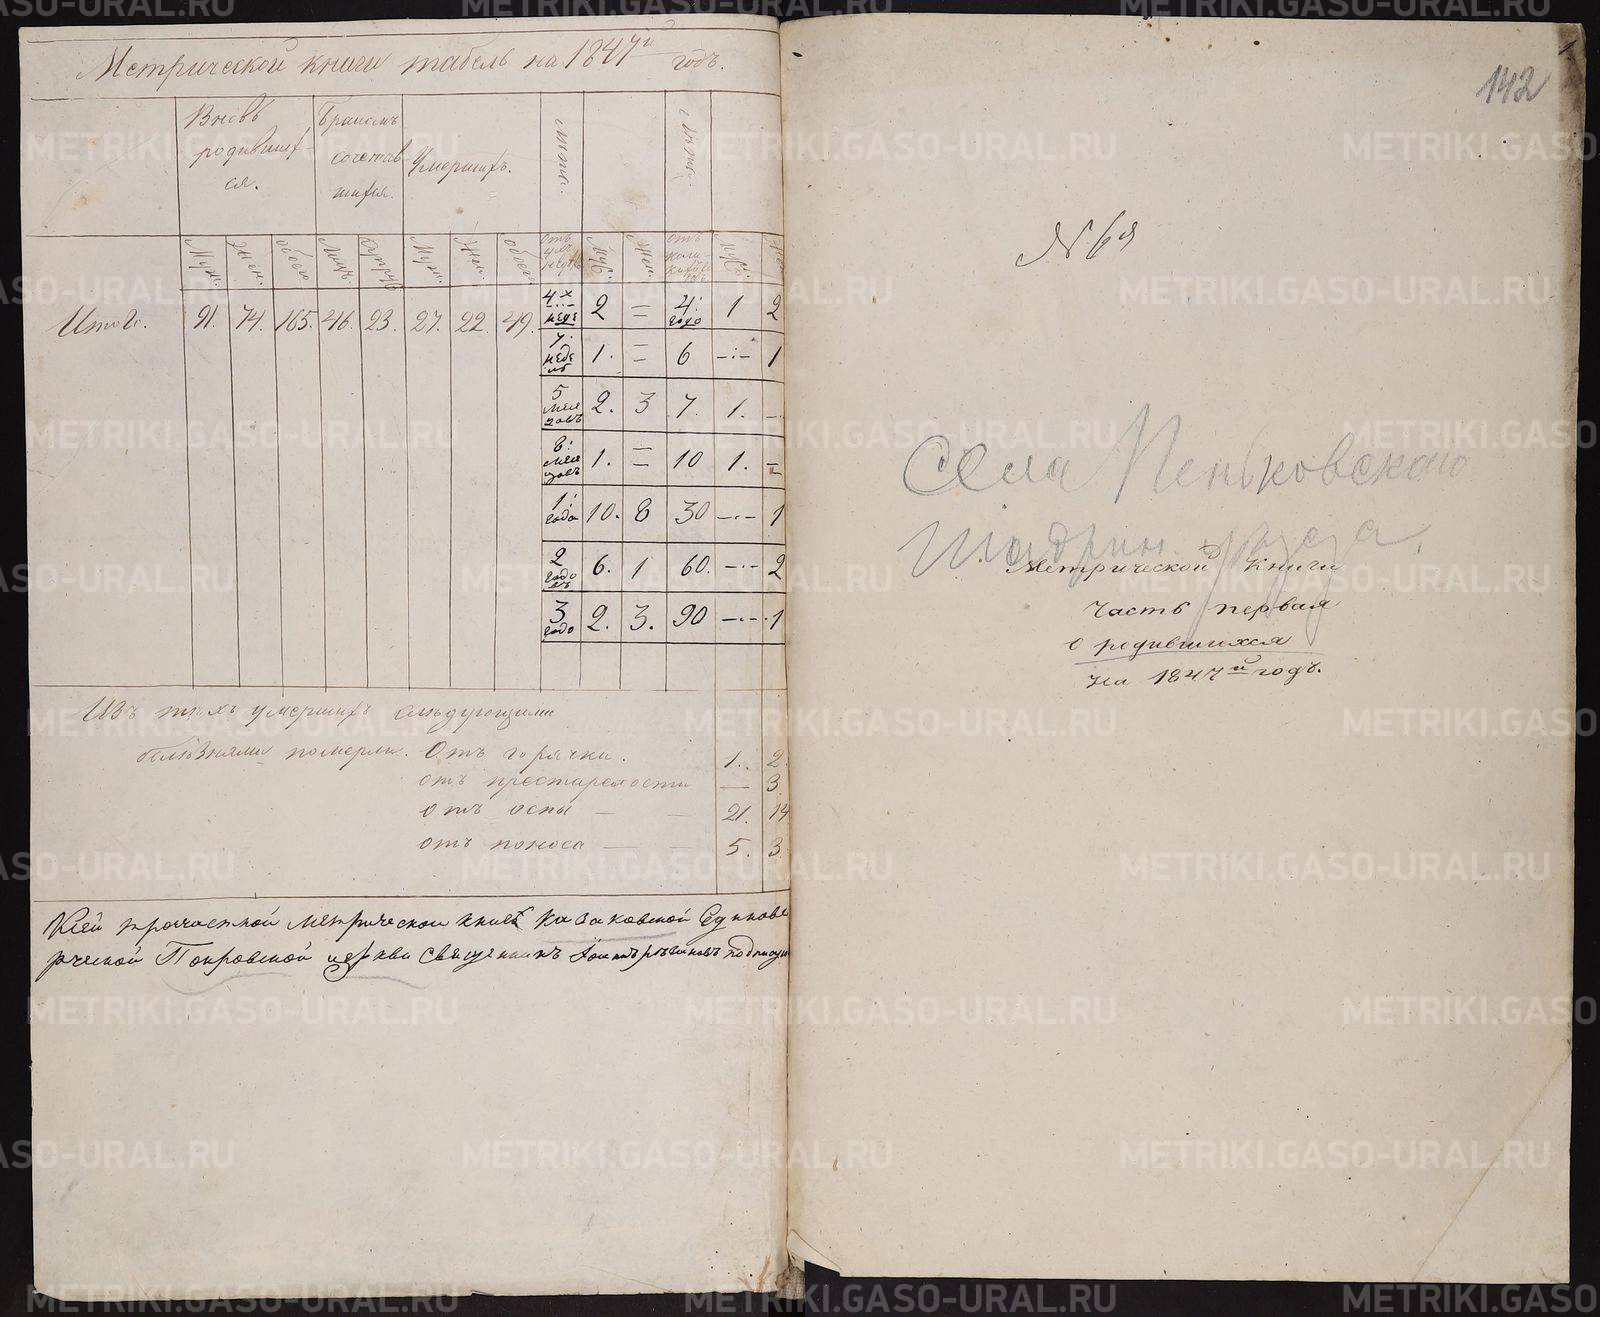 Метрической книги табель на 1847й годъ.
Вновь родившихся.
Бракомъ сочетавшихся.
Умершихъ.
Лѣта.
Лѣта.
Муж. Жен. обоего Муж. Жен. обоего Муж. Жен. Муж.
Итого. 91. 74. 165. 46. 23. 27. 22. 49.
4х неде 2 = 4. годо 1 2
7. неде ль 1. = 6 -·- 1
5 меся цовъ 2. 3 7. 1. -
8. меся цовъ 1. = 10 1. =
1. года 10. 8 30 -·- 1
2 годо въ 6. 1 60. -·- 2
3 годо 2. 3. 90 -·- 1
Изъ тѣхъ умершихъ слѣдующими
болѣзнями померли. Отъ горячки. 1. 2.
отъ престарелости — 3
отъ оспы — — 21. 14
отъ поноса — — 5. 3
Къ сей трочастной метрической книгѣ Казаковской Единове
рческой Покровской церкви Священникъ подписуи
142
№ 6й
Села Пеньковского
Шадрин. уезда.
Метрической Книги
часть первая
о родившихся
на 1847й годъ.
METRIKI.GASO-URAL.RU